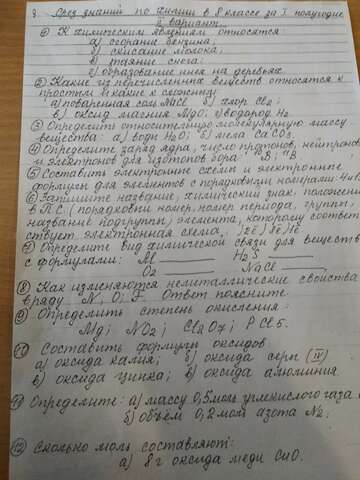 Срез знаний по химии в 8 классе за I полугодие
II вариант.
① К химическим явлениям относятся
а) сгорание бензина;
б) скисание молока;
в) таяние снега;
г) образование инея на деревьях.
② Какие из перечисленных веществ относятся к
простым и какие к сложным:
а) поваренная соль NaCl б) хлор Cl₂;
в) оксид магния MgO; г) водород H₂
③ Определить относительную молекулярную массу
вещества: а) воды H₂O; б) мела CaCO₃
④ Определите заряд ядра, число протонов, нейтронов
и электронов для изотопов бора B; ¹¹B
⑤ Составить электронные схемы и электронные
формулы для элементов с порядковыми номерами: 4 и
⑥ Запишите название, химический знак. положение
в П.С. (порядковый номер, номер периода, группы,
название подгруппы) элемента, которому соответ
ствует электронная схема: (2ē) 8ē
⑦ Определите вид химической связи для веществ
с формулами: H₂S
O₂ NaCl
⑧ Как изменяются неметаллические свойства
в ряду N; O; F. Ответ поясните.
⑨ Определить степень окисления:
Mg; NO₂; Cl₂O₇; PCl₅.
⑩ Составить формулы оксидов
а) оксида калия; б) оксида серы (IV)
в) оксида цинка; в) оксида алюминия
⑪ Определите: а) массу 0,5 моль углекислого газа
б) объем 0,2 моль азота N₂;
⑫ Сколько моль составляют:
а) 8 г оксида меди CuO.